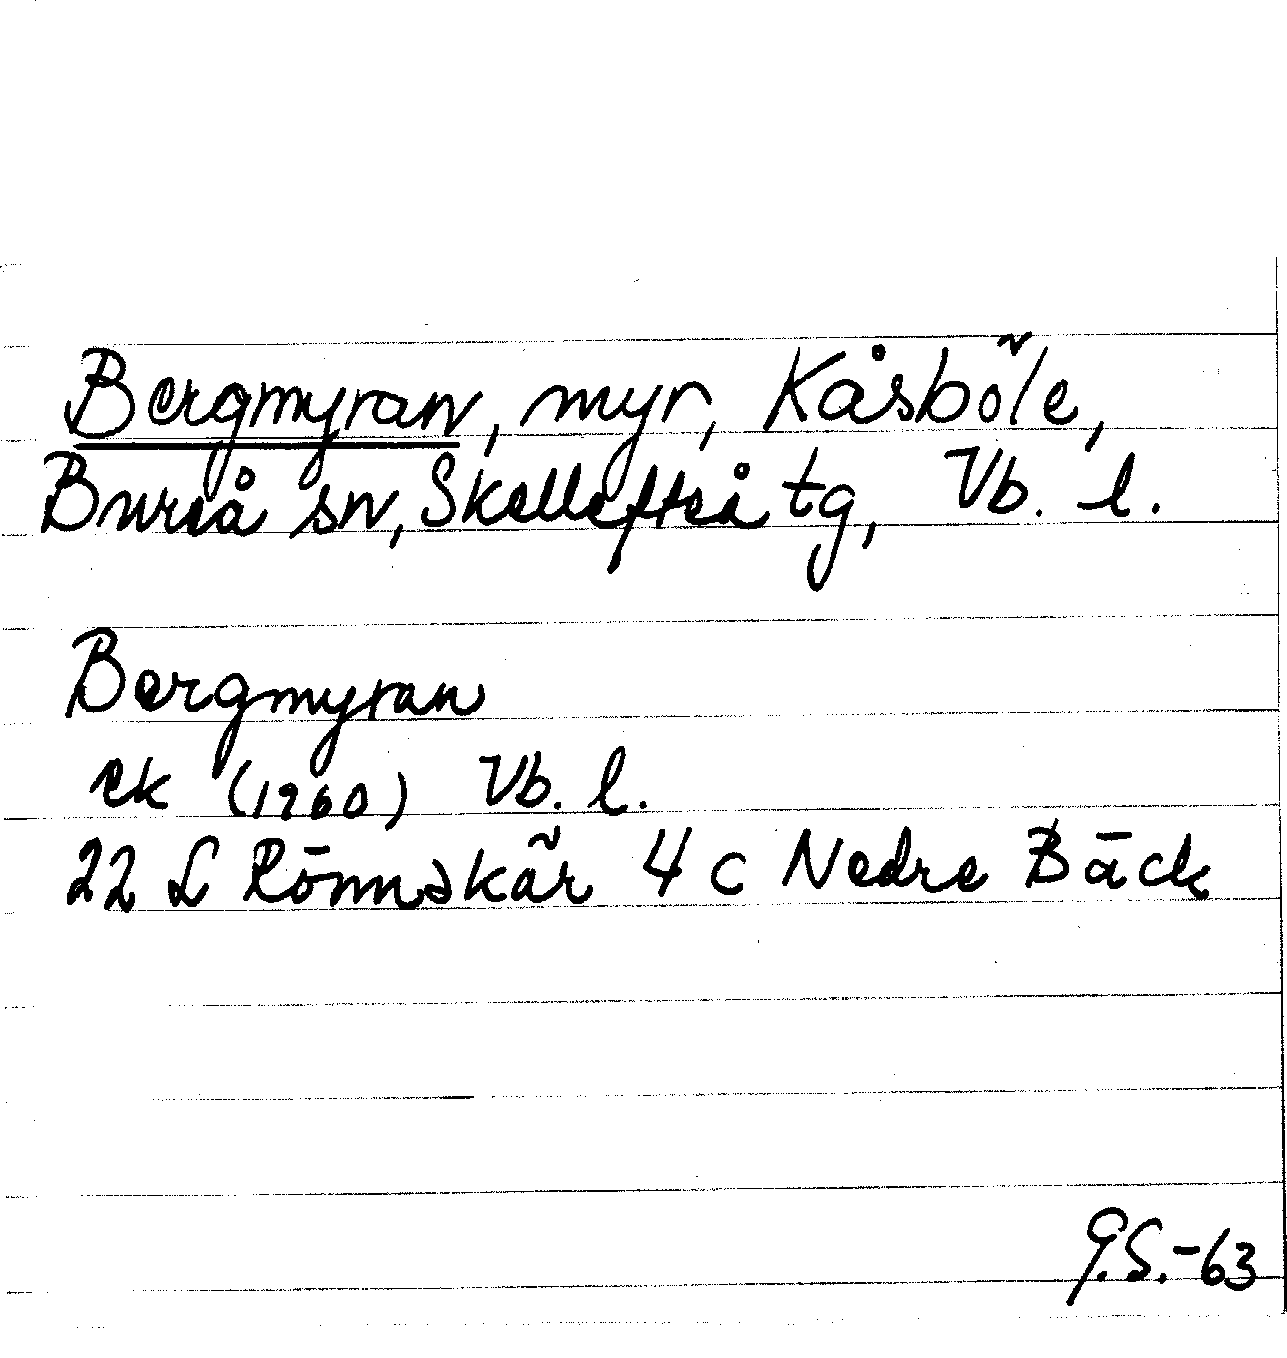 Bergmyran, myr, Kåsböle,
Bureå sn, Skellefteå tg, Vb. l.
Bergmyran
ek (1960) Vb. l.
22 L Rönnskär 4 c Nedre Bäck
G.S.-63